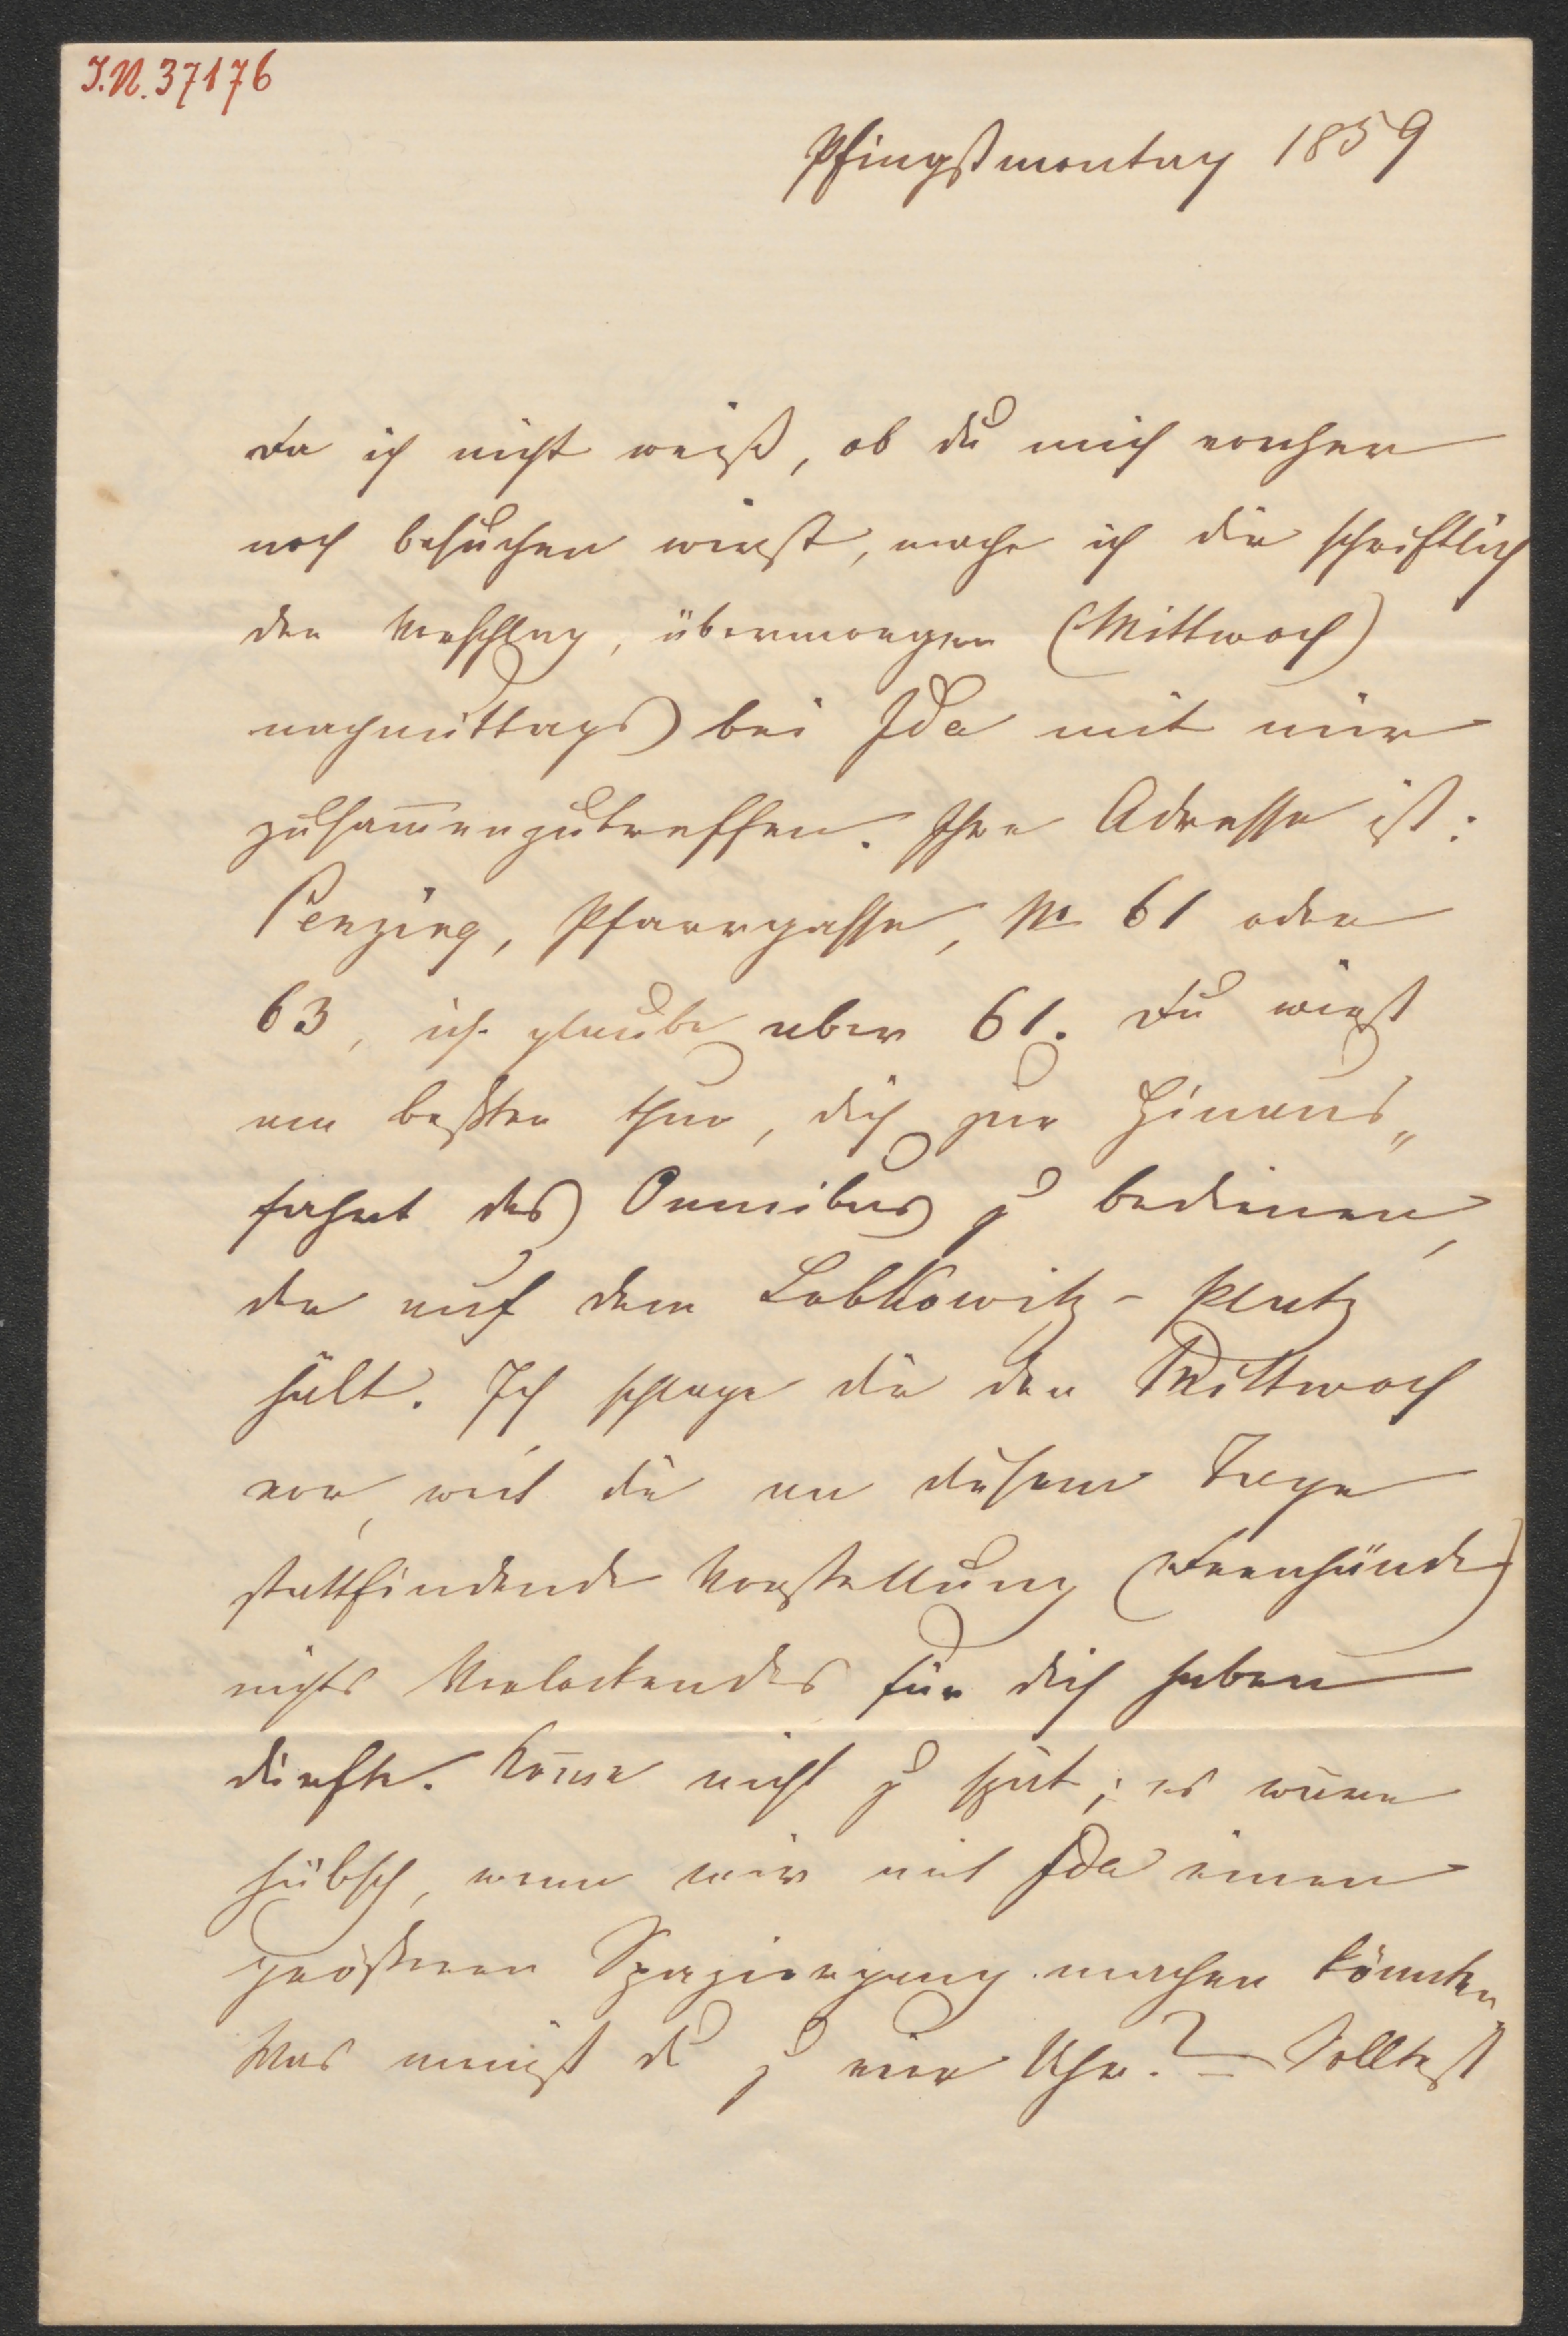 I.N. 37176
Pfingstmontag 1859
Da ich nicht weiß, ob du mich vorher
noch besuchen wirst, mache ich dir schriftlich
den Vorschlag, übermorgen (Mittwoch)
nachmittags bei Ida mit mir
zusam̅enzutreffen. Ihre Adresse ist:
Penzing, Pfarrgasse, No 61 oder
63, ich glaube aber 61. Du wirst
am beßten thun, dich zur Hinaus„
fahrt des Omnibus zu bedienen,
der auf dem Lobkowitz-Platz
hält. Ich schlage dir den Mittwoch
vor, weil die an diesem Tage
stattfindende Vorstellung (Feenhände)
nichts Verlockendes für dich haben
dürfte. Kom̅e nicht zu spät; es wäre
hübsch, wenn wir mit Ida einen
größeren Spaziergang machen könnten
Was meinst du zu vier Uhr? – Solltest